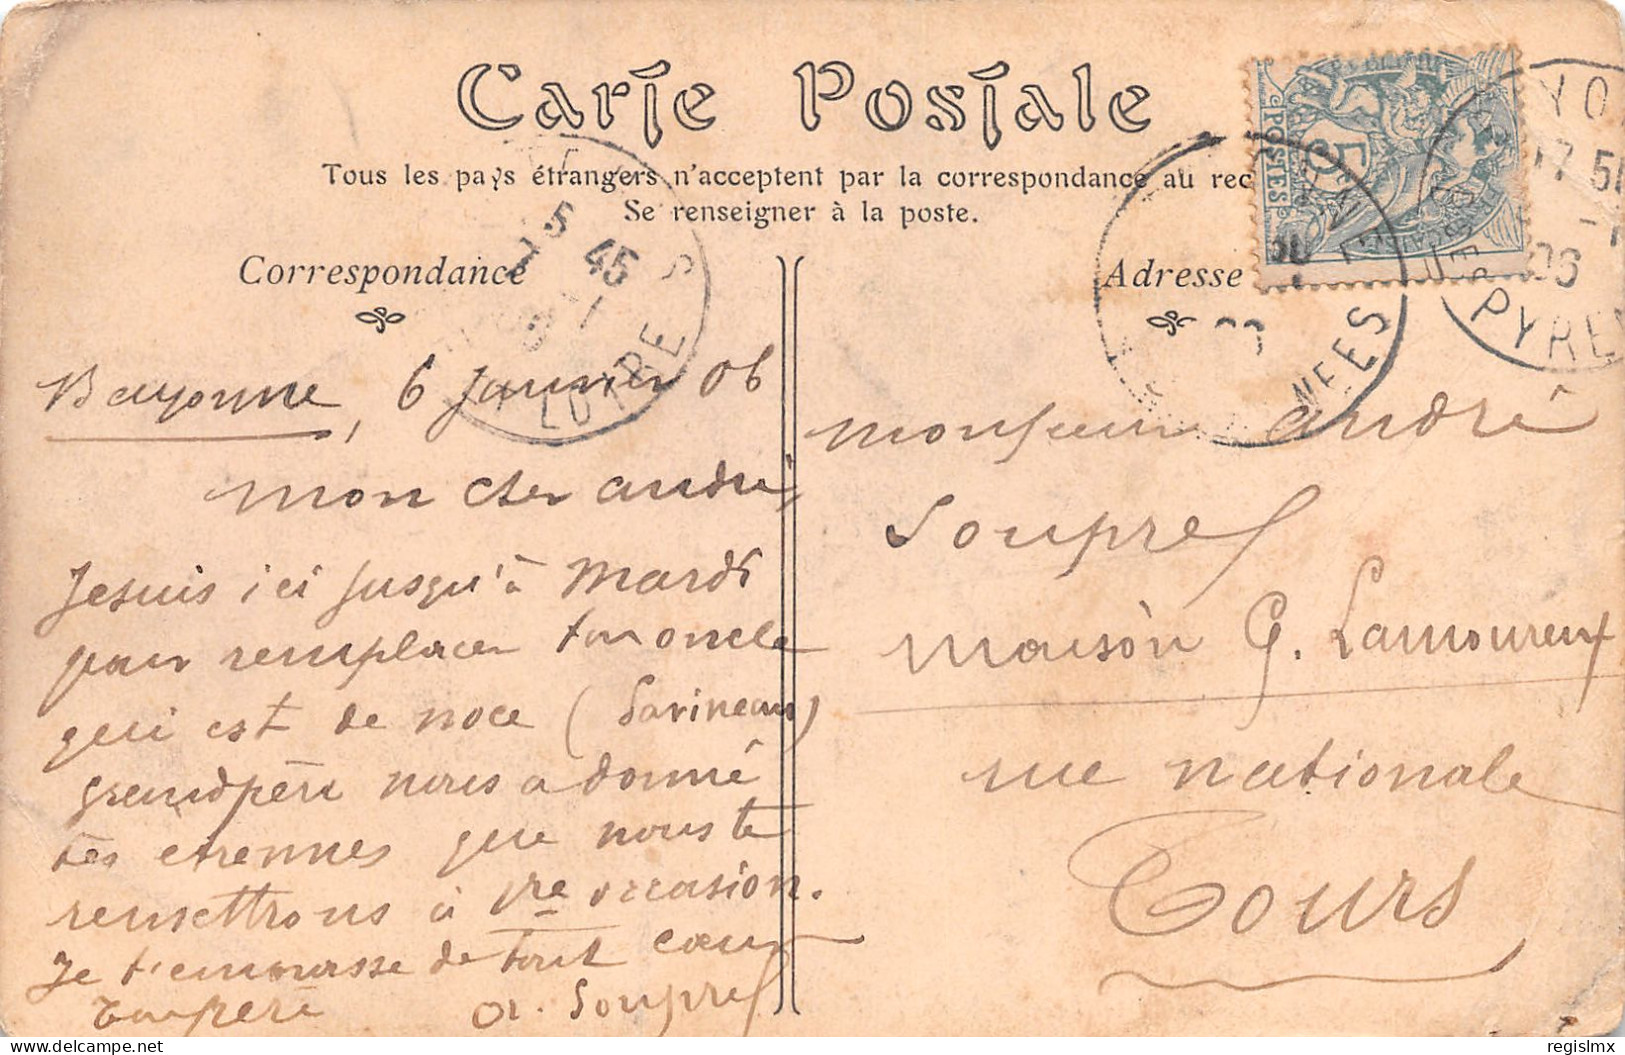 Carte Postale
Tous les pays étrangers n'acceptent par la correspondance au rec
Se renseigner à la poste.
Correspondance
Adresse
5 45
7
LOIRE S
YO
17 50
06
PYREN
NEES
POSTES
5
Bayonne, 6 Janvier 06
mon cher andré,
Je suis ici jusqu'à Mardi
pour remplacer ton oncle
qui est de noce (Savineau)
grandpère nous a donné
tes etrennes que nous te
remettrons à 1re occasion.
Je t'embrasse de tout cœur
Ton père
A. Souprey
Monsieur andré
Souprey
Maison G. Lamoureux
rue nationale
Tours
delcampe.net
regislmx